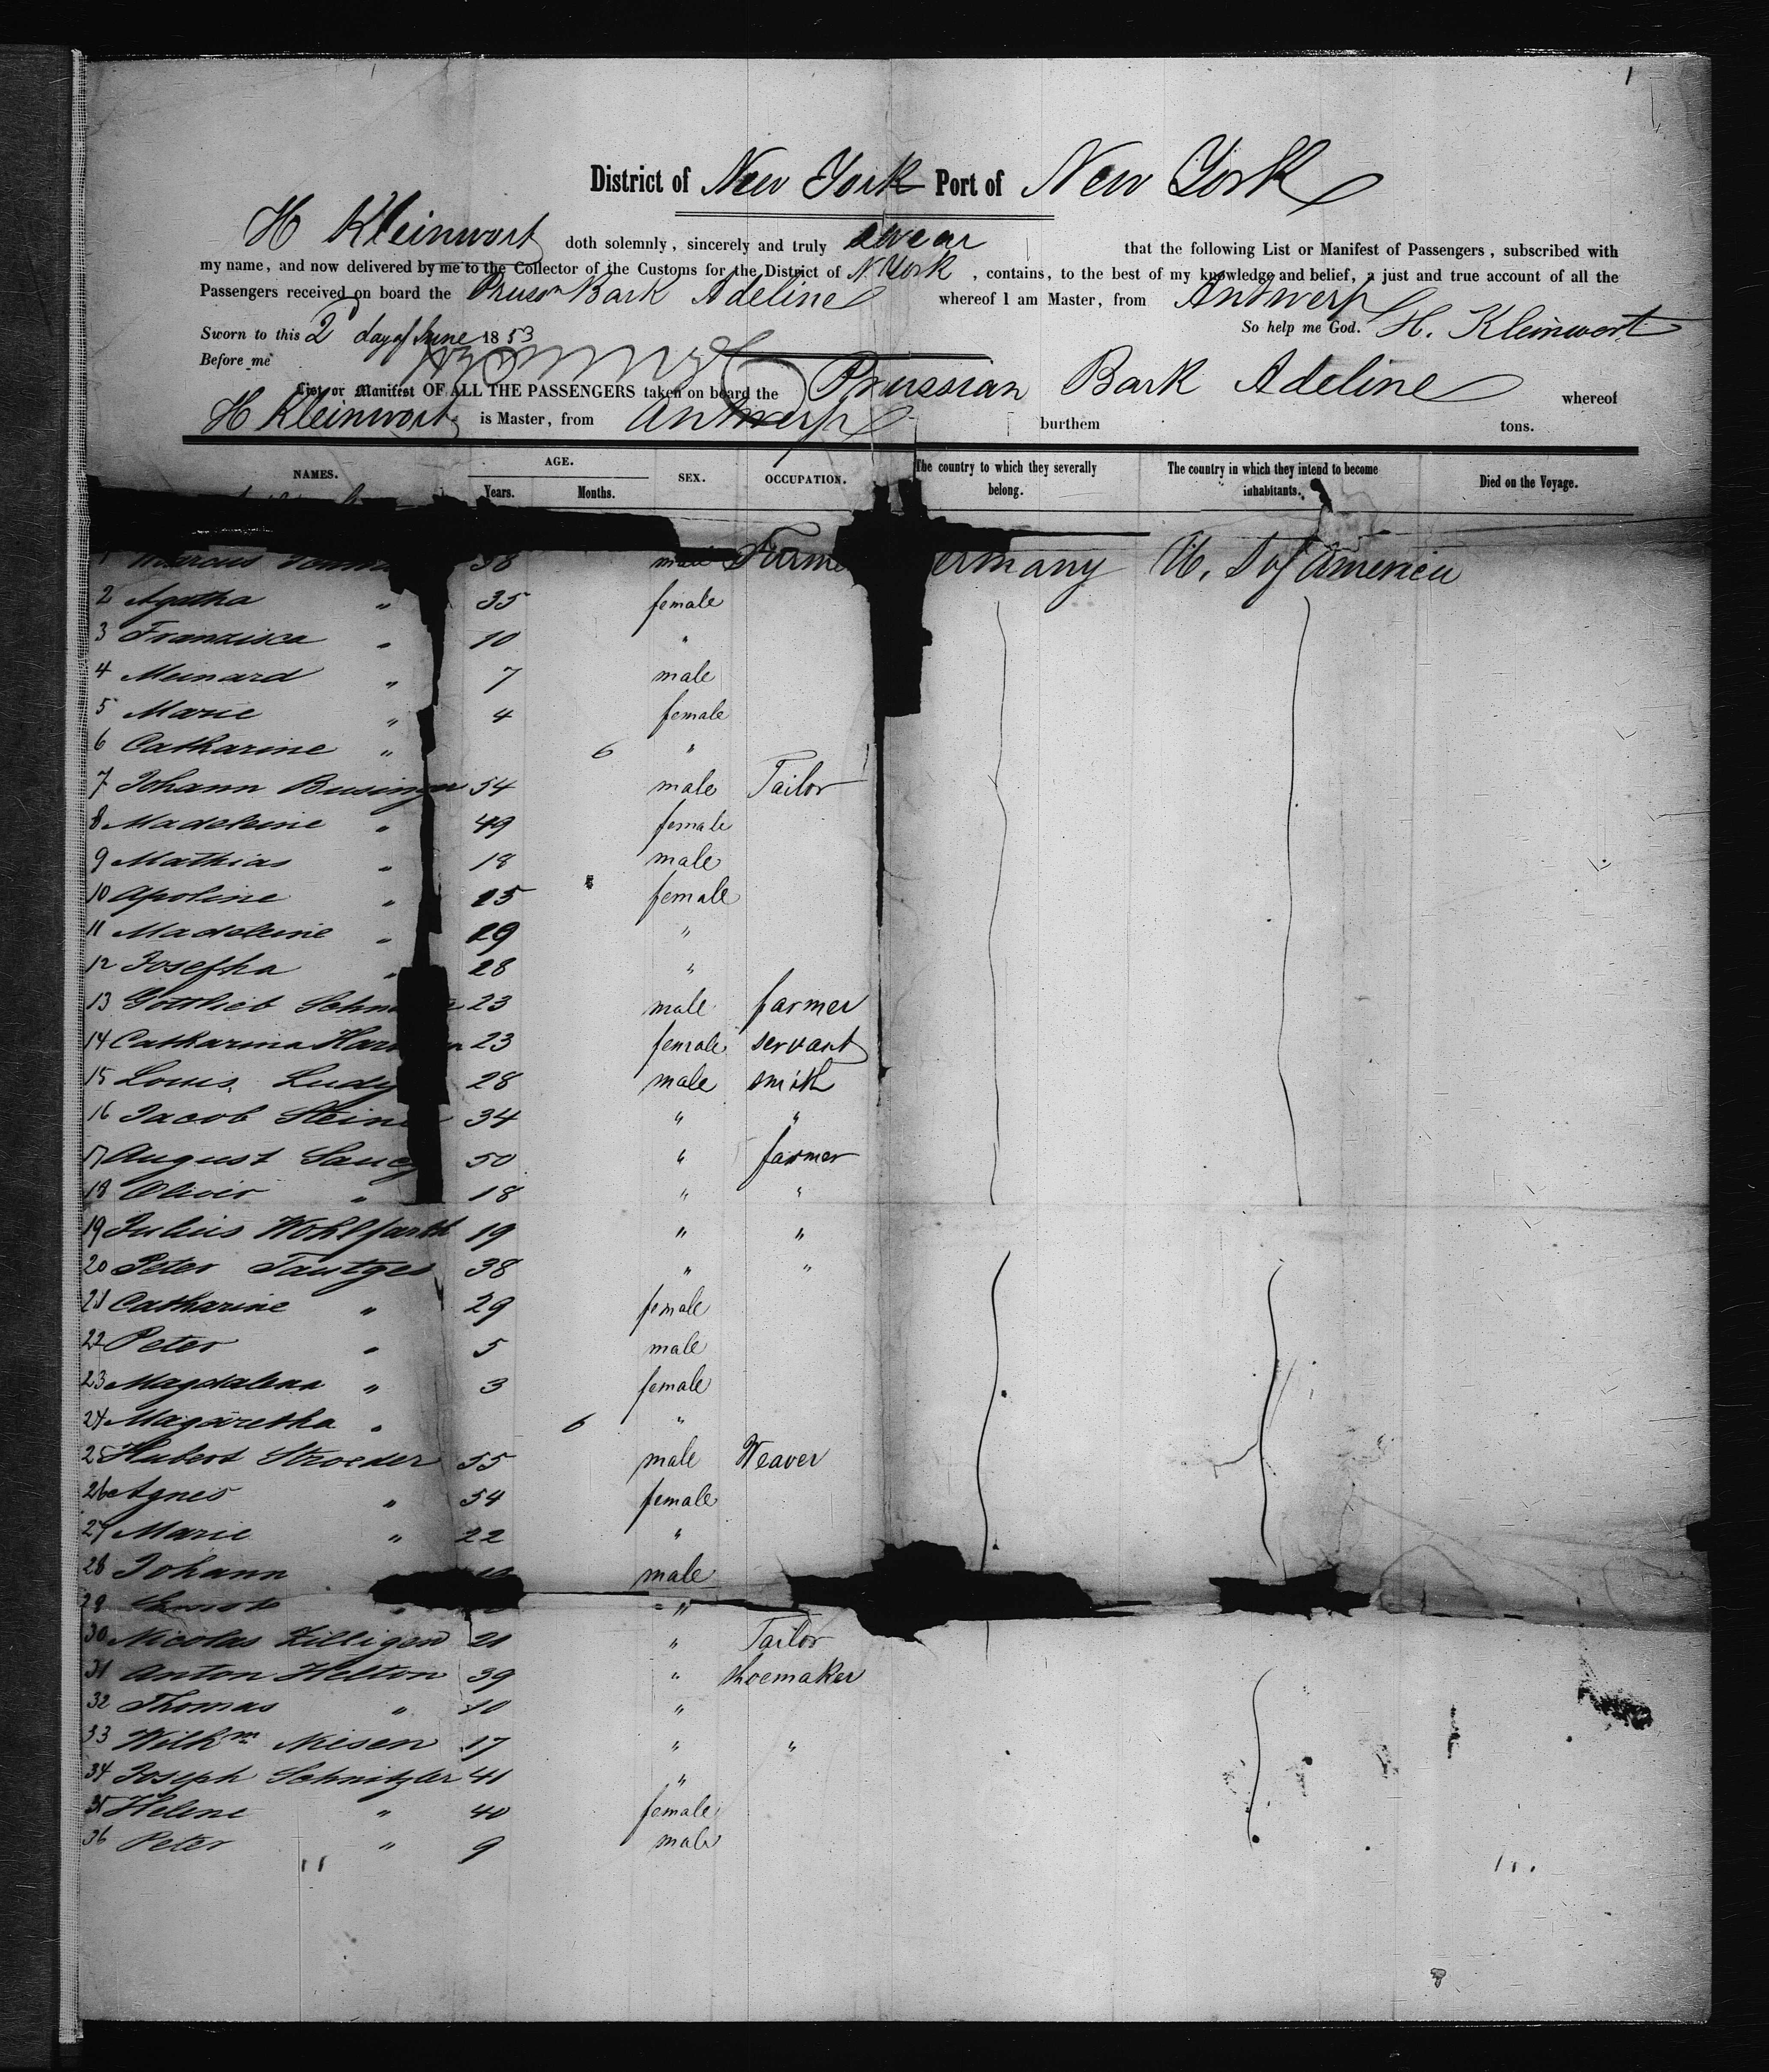 1
District of New York Port of New York
H Kleinwort doth solemnly, sincerely and truly swear that the following List or Manifest of Passengers, subscribed with
my name, and now delivered by me to the Collector of the Customs for the District of N. York, contains, to the best of my knowledge and belief, a just and true account of all the
Passengers received on board the Prussn Bark Adeline whereof I am Master, from Antwerp
Sworn to this 2d day of June 1853 So help me God. H. Kleinwort
Before me
List or Manifest OF ALL THE PASSENGERS taken on board the Prussian Bark Adeline whereof
H Kleinwort is Master, from Antwerp burthem tons.
NAMES. AGE. Years. Months. SEX. OCCUPATION. The country to which they severally belong. The country in which they intend to become inhabitants. Died on the Voyage.
1 Marcus 38 male Farme ermany U. S of America
2 Agatha " 35 female
3 Franzisca " 10 "
4 Meinard " 7 male
5 Marie " 4 female
6 Catharine " 6 "
7 Johann Businger 54 male Tailor
8 Madeleine " 49 female
9 Mathias " 18 male
10 Apoline " 25 female
11 Madeleine " 29 "
12 Josepha " 28 "
13 Gottlieb Schn 23 male farmer
14 Catharina Har n 23 female servant
15 Louis Ludy 28 male smith
16 Jacob Steine 34 " "
17 August Saucy 50 " farmer
18 Olivir " 18 " "
19 Julius Wohlfarth 19 " "
20 Peter Tautges 38 " "
21 Catharine " 29 female
22 Peter " 5 male
23 Magdalena " 3 female
24 Magaretha " 6 "
25 Hubert Stroeder 55 male Weaver
26 Agnes " 54 female
27 Marie " 22 "
28 Johann male
29 " "
30 Nicolas Zilligen 21 " Tailor
31 Anton Helton 39 " shoemaker
32 Thomas " 10 "
33 Wilhm Niesen 17 " "
34 Joseph Schnitzler 41 "
35 Helene " 40 female
36 Peter " 9 male